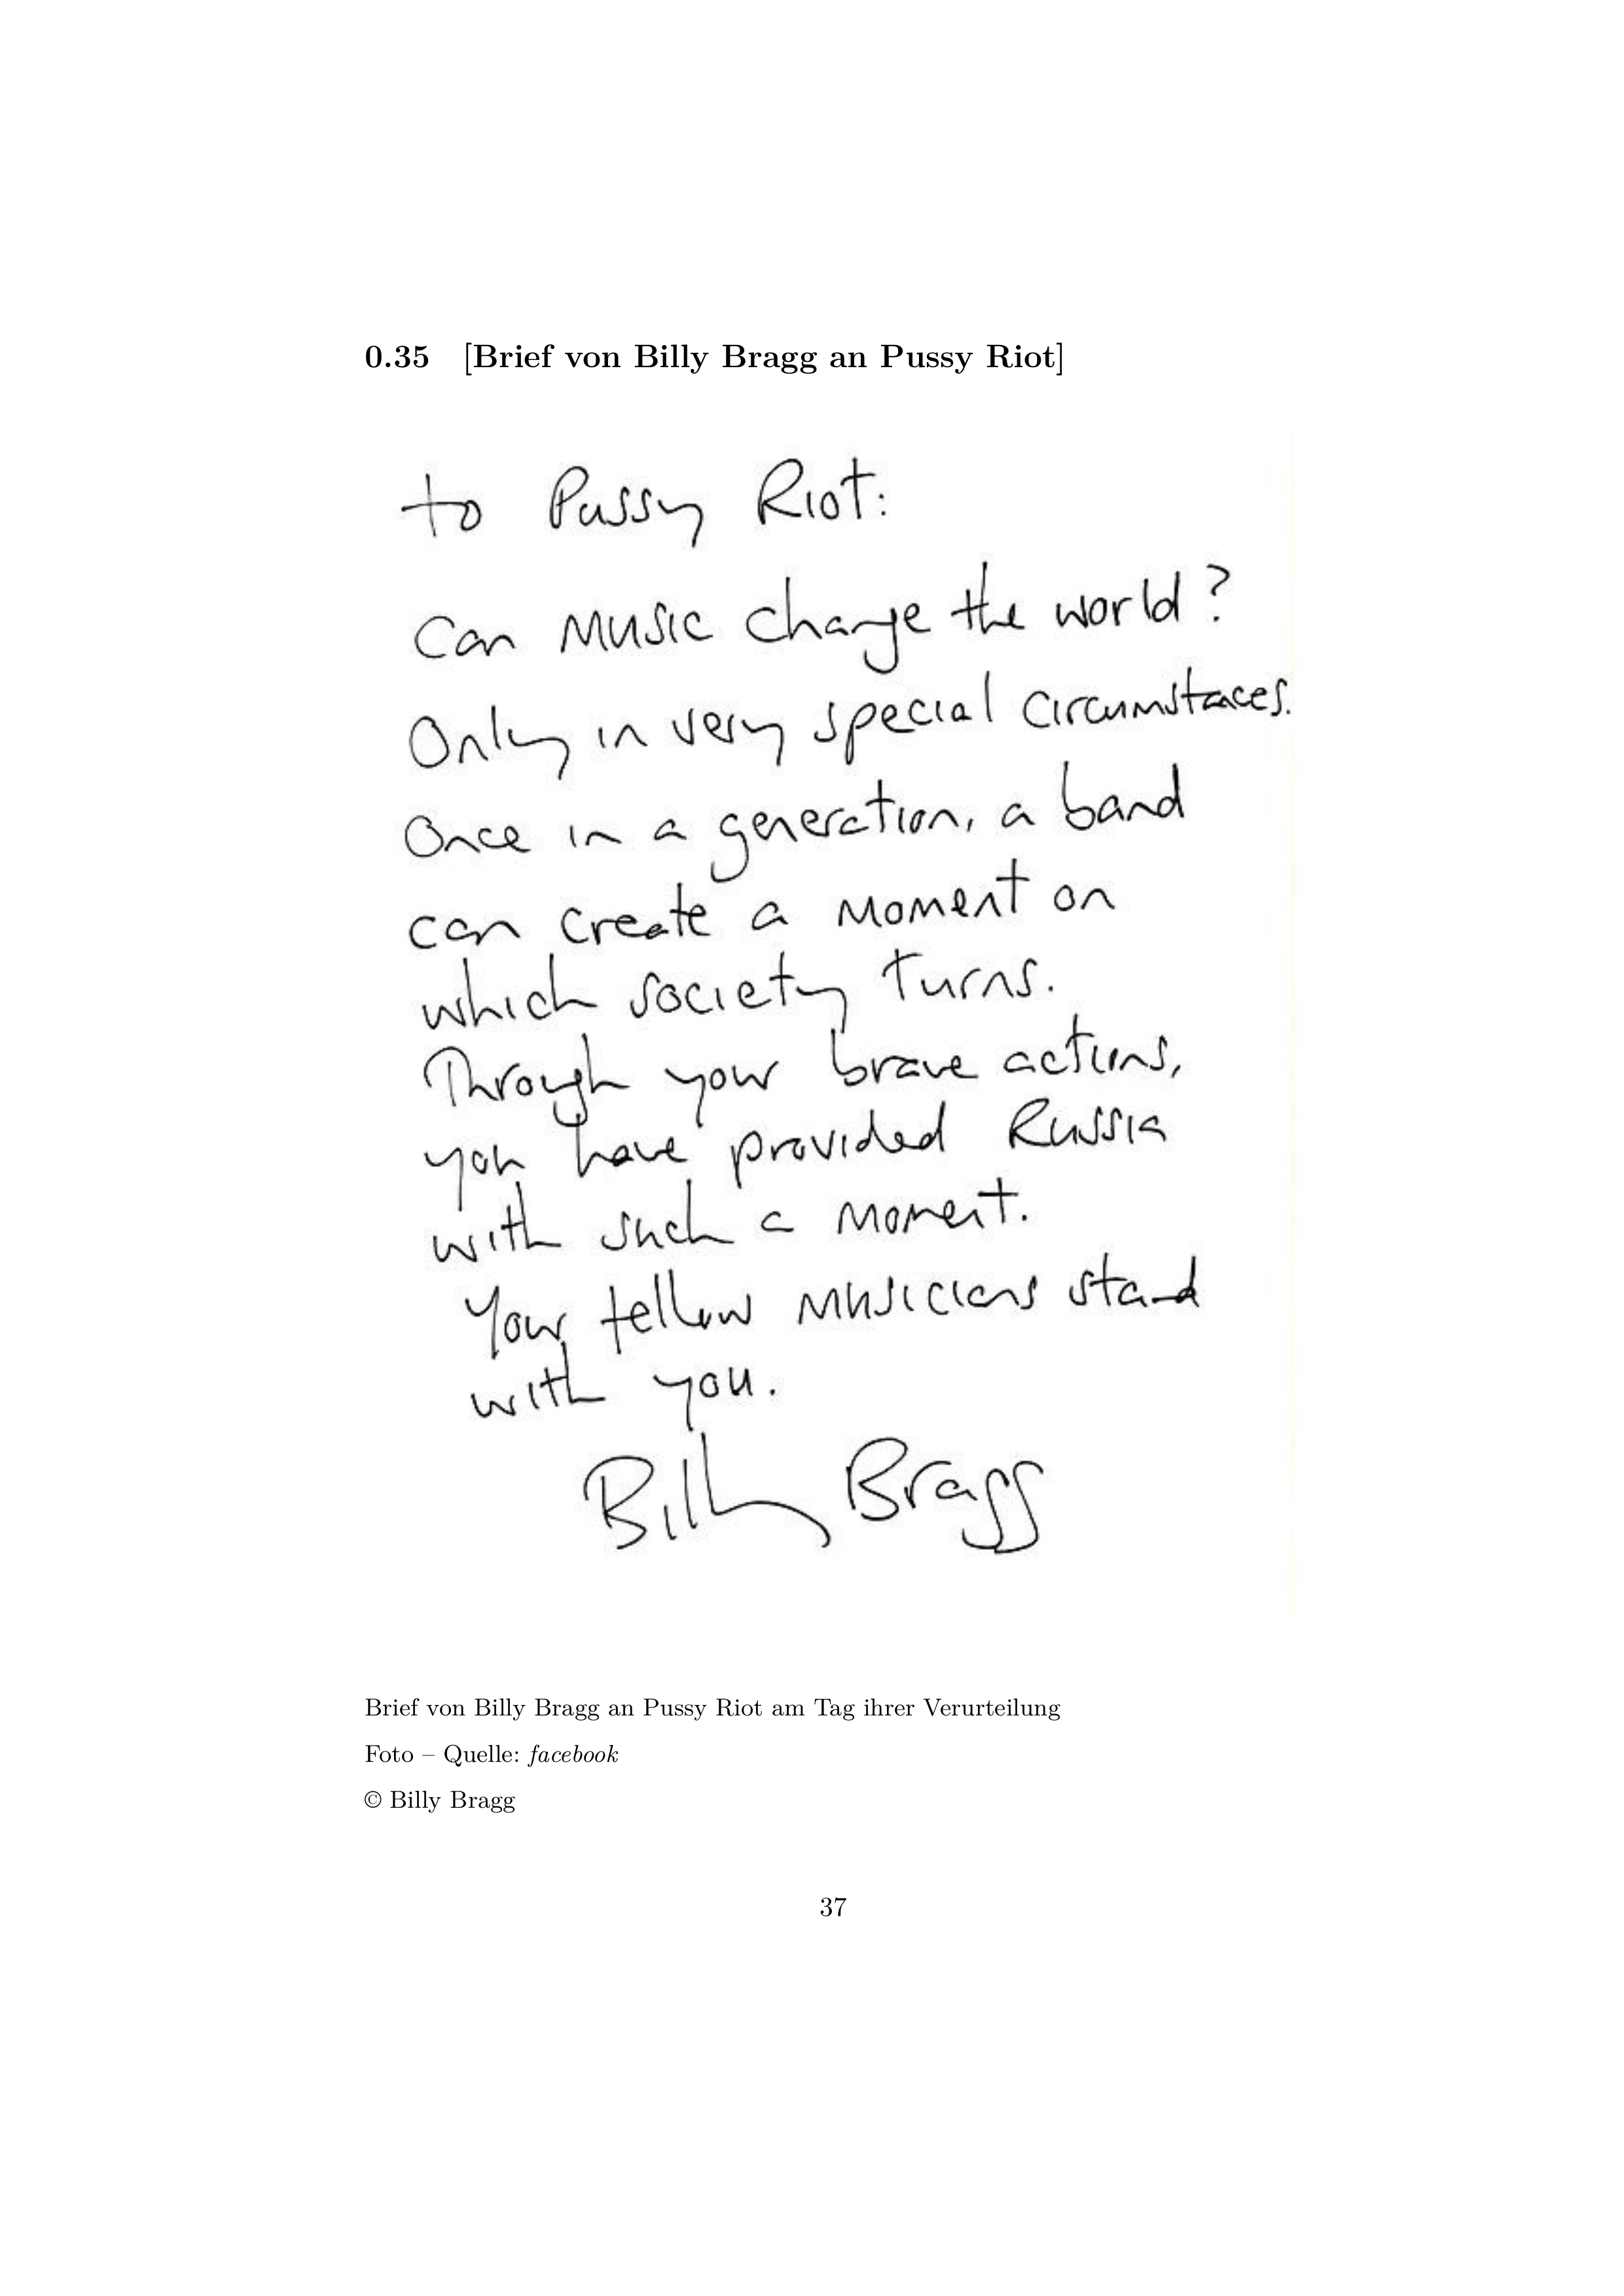 0.35 [Brief von Billy Bragg an Pussy Riot]
to Pussy Riot:
Can Music change the world?
Only in very special circumstances.
Once in a generation, a band
can create a moment on
which society turns.
Through your brave actions,
you have provided Russia
with such a moment.
Your fellow musicians stand
with you.
Billy Bragg
Brief von Billy Bragg an Pussy Riot am Tag ihrer Verurteilung
Foto – Quelle: facebook
© Billy Bragg
37